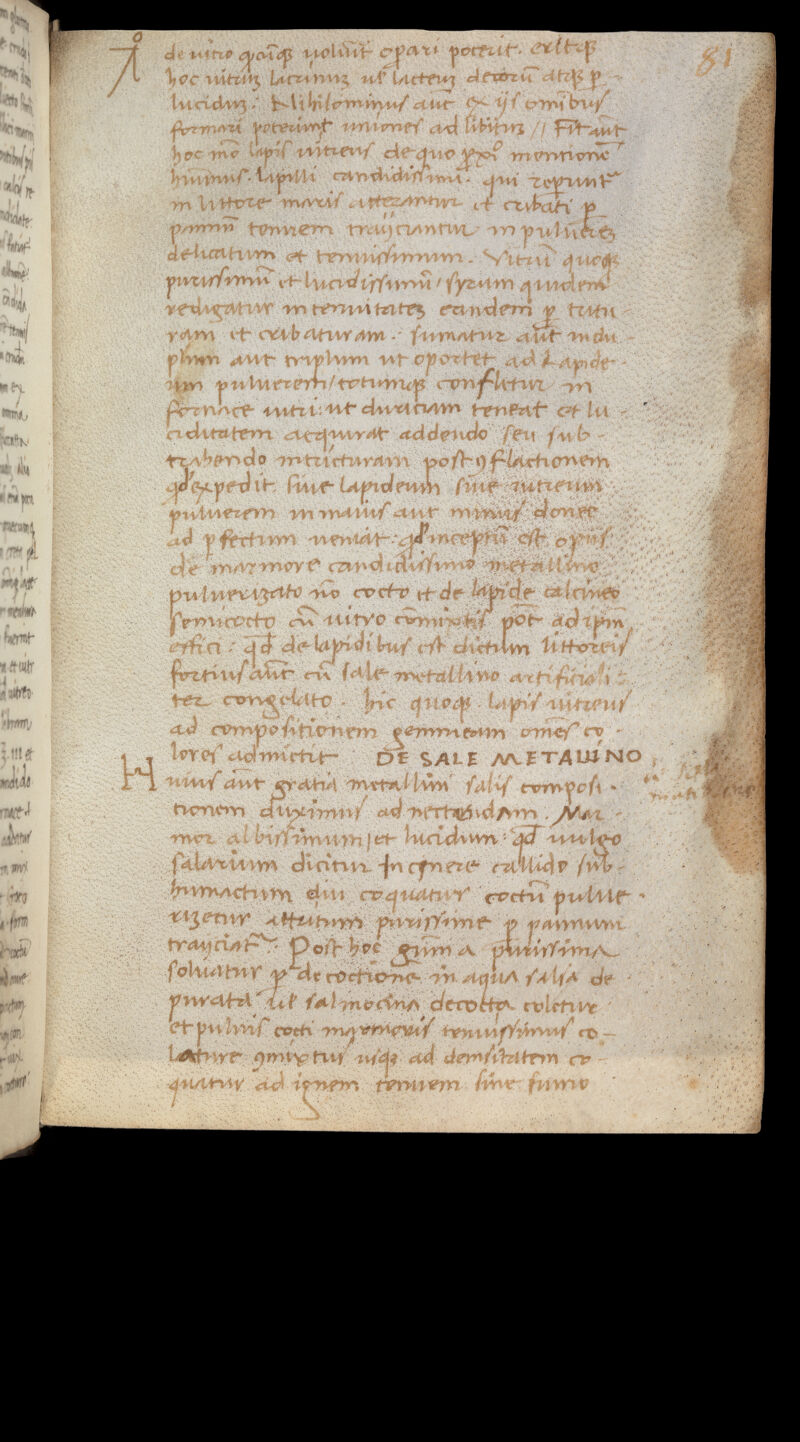 81
de uitro qcūq uolūt opari poterit. eritq
hoc uitrūꝫ lacteuꝫ decorū atq p-
luciduꝫ. Nihilominus aūt ex ijs omībus
formari poterunt uniones ad libituꝫ // Fit aūt
hoc mō lapis uitreus de quo pxī mentionē
hīuimus. lapilli candidissimi. qui reperiunt
in littore maris atterantur et cribati p
pannū tenuem traijciantur in puluereꝫ
delicatum et tenuissimum. Vitrū quoq
purissimū et lucidissimū / syrum quidem
redigatur in tenuitateꝫ eandem p tritu-
ram et cribaturam. sumatur aūt in du-
plum aut triplum ut oportet ad Lapide-
um puluerem / totumq confletur in
fornace uitri: ut duriciam teneat et lu-
ciditatem acquirat addendo seu sub-
trahendo mricturam post ꝯflactionem
qđ expedit siue lapideum siue uitreum
puluerem in maius aut minus donec
ad pfectum ueniat: qđ inceptū est opus
de marmore candidissimo metallino
puluerizato nō cocto et de lapide calcineo
semicocto cū uitro cōmixtis pōt ad ipm̄
effici: qđ de lapidibus est dictum littoreis
fortius aūt cū sale metallino artificiali-
ter congelato. hic quoq lapis uitreus
ad compositionem gemmeam omēs co-
lores admictit DE SALE METALLINO
Huius aūt gratia metallini salis composi-
tionem duximus adnectendam. Mar-
mor albissimum / et lucidum: qđ uulgo
salarium dicitur In cinere callido sub-
humactum diu coquatur coctū pulue-
rizetur attritum purissime p pannum
traijciat. Post hoc gūma purissima
soluatur p decoctionē in aqua salsa de-
purata ul salmocina decocta coletur
et puluis cocti marmoris tenuissimus co-
lature ꝯmixtus usq ad demsitatem co-
quatur ad ignem tenuem sine fumo